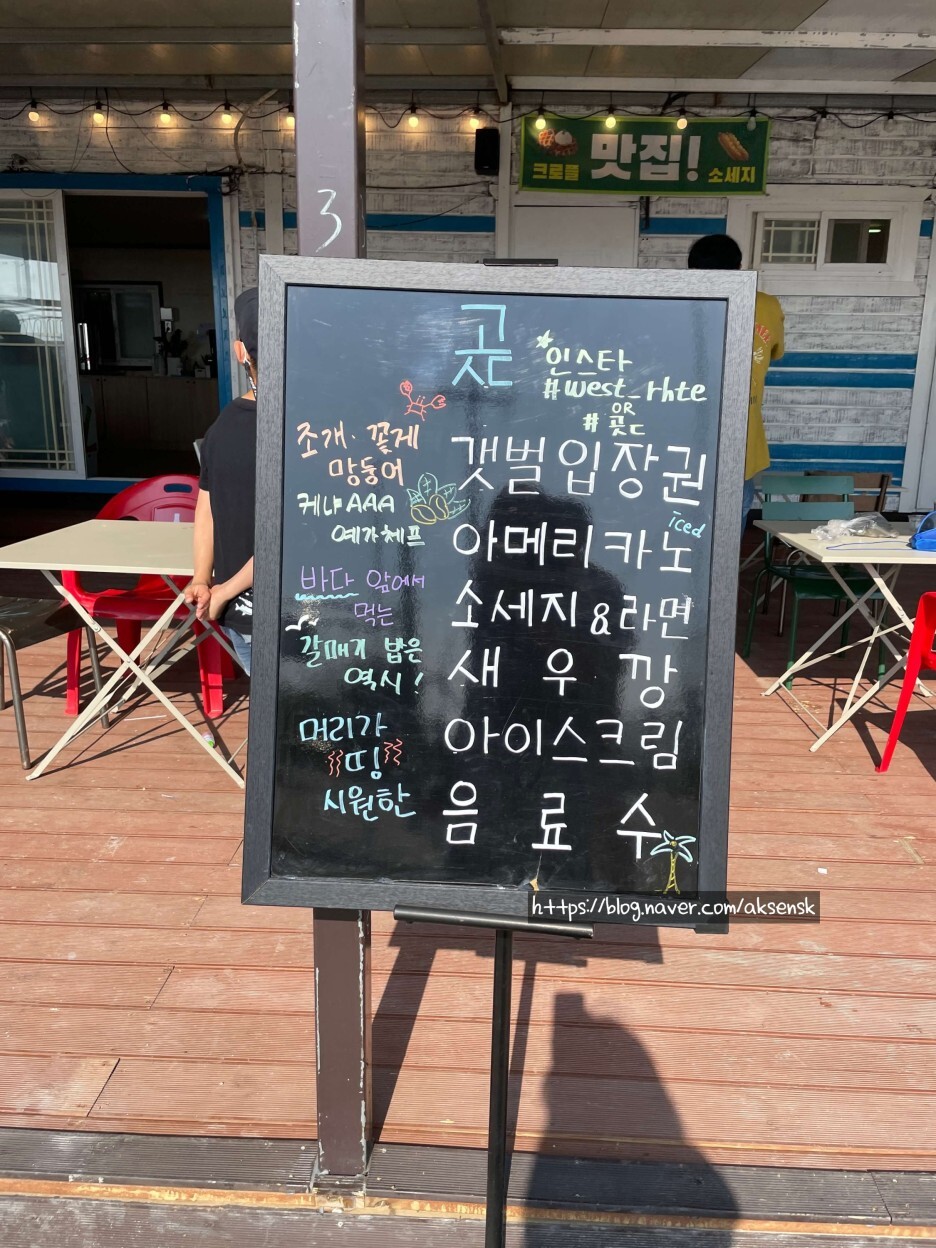 크로플 맛집! 소세지
3
곶
*인스타
#west_rhte
OR
#곶ㄷ
조개·꽃게
망둥어
갯벌입장권
케냐AAA
예가체프
iced
아메리카노
바다 앞에서
먹는
소세지&라면
갈매기 밥은
역시!
새우깡
머리가
띵
시원한
아이스크림
음료수
https://blog.naver.com/aksensk